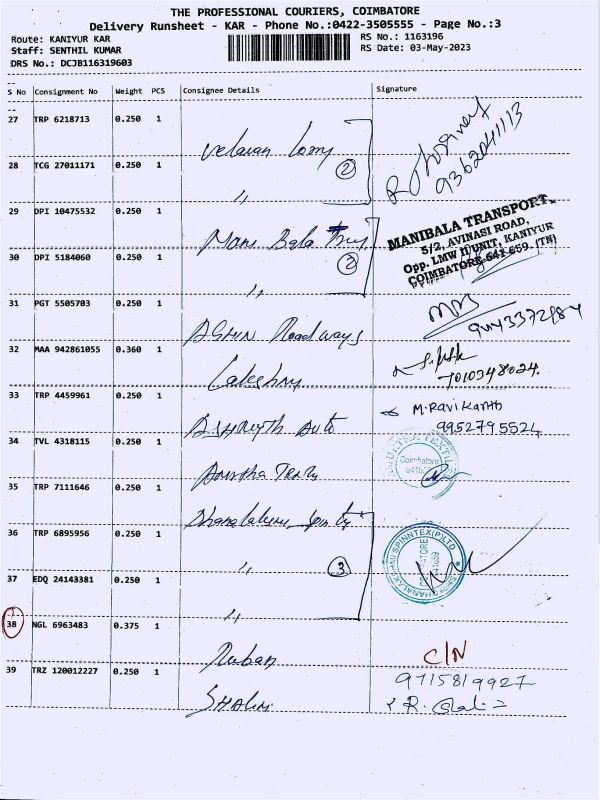 THE PROFESSIONAL COURIERS, COIMBATORE
Delivery Runsheet - KAR - Phone No.:0422-3505555 - Page No.:3
Route: KANIYUR KAR
RS No.: 1163196
Staff: SENTHIL KUMAR
RS Date: 03-May-2023
DRS No.: DCJB116319603
S No Consignment No Weight PCS Consignee Details Signature
27 TRP 6218713 0.250 1
velavan lorry 2
9362041113
28 TCG 27011171 0.250 1
,,
29 DPI 10475532 0.250 1
Mani Bala
2
MANIBALA TRANSPORT,
5/2, AVINASI ROAD,
Opp. LMW II UNIT, KANIYUR
COIMBATORE-641 659. (TN)
30 DPI 5184060 0.250 1
,,
31 PGT 5505703 0.250 1
Roadways
32 MAA 942861055 0.360 1
7010348024.
33 TRP 4459961 0.250 1
Auto
M.Ravi Kanth
9952795524
34 TVL 4318115 0.250 1
Coimbatore
35 TRP 7111646 0.250 1
Dhanalakshmi
36 TRP 6895956 0.250 1
,, 3
DHANALAKSHMI SPINNTEX (P) LTD
COIMBATORE
641659
37 EDQ 24143381 0.250 1
,,
38 NGL 6963483 0.375 1
Ruban
C/N
39 TRZ 120012227 0.250 1
9715819927
Shalini